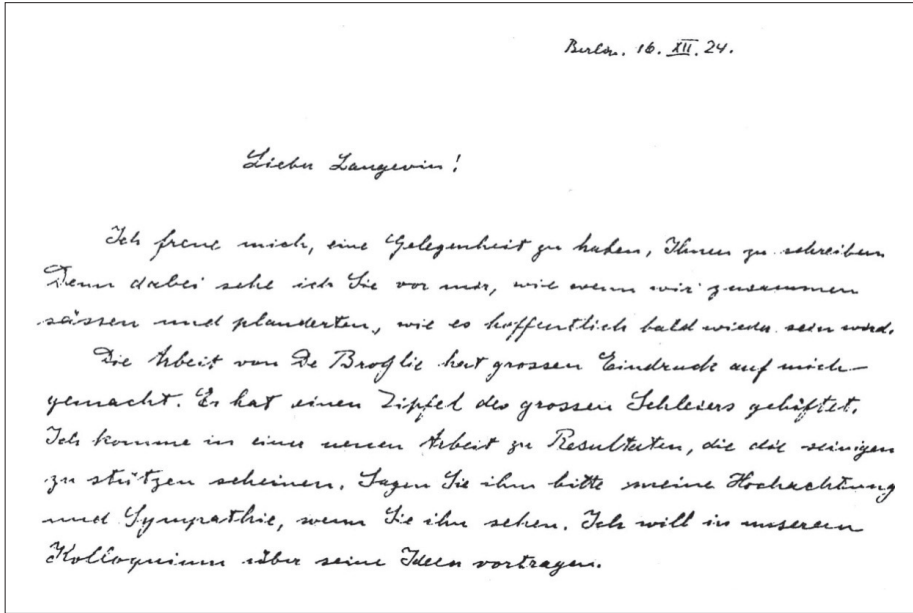 Berlin. 16. XII. 24.
Lieber Langevin!
Ich freue mich, eine Gelegenheit zu haben, Ihnen zu schreiben
Denn dabei sehe ich Sie vor mir, wie wenn wir zusammen
sässen und plauderten, wie es hoffentlich bald wieder sein wird.
Die Arbeit von De Broglie hat grossen Eindruck auf mich
gemacht. Er hat einen Zipfel des grossen Schleiers gelüftet.
Ich komme in einer neuen Arbeit zu Resultaten, die die seinigen
zu stützen scheinen. Sagen Sie ihm bitte meine Hochachtung
und Sympathie, wenn Sie ihn sehen. Ich will in unserem
Kolloquium über seine Ideen vortragen.